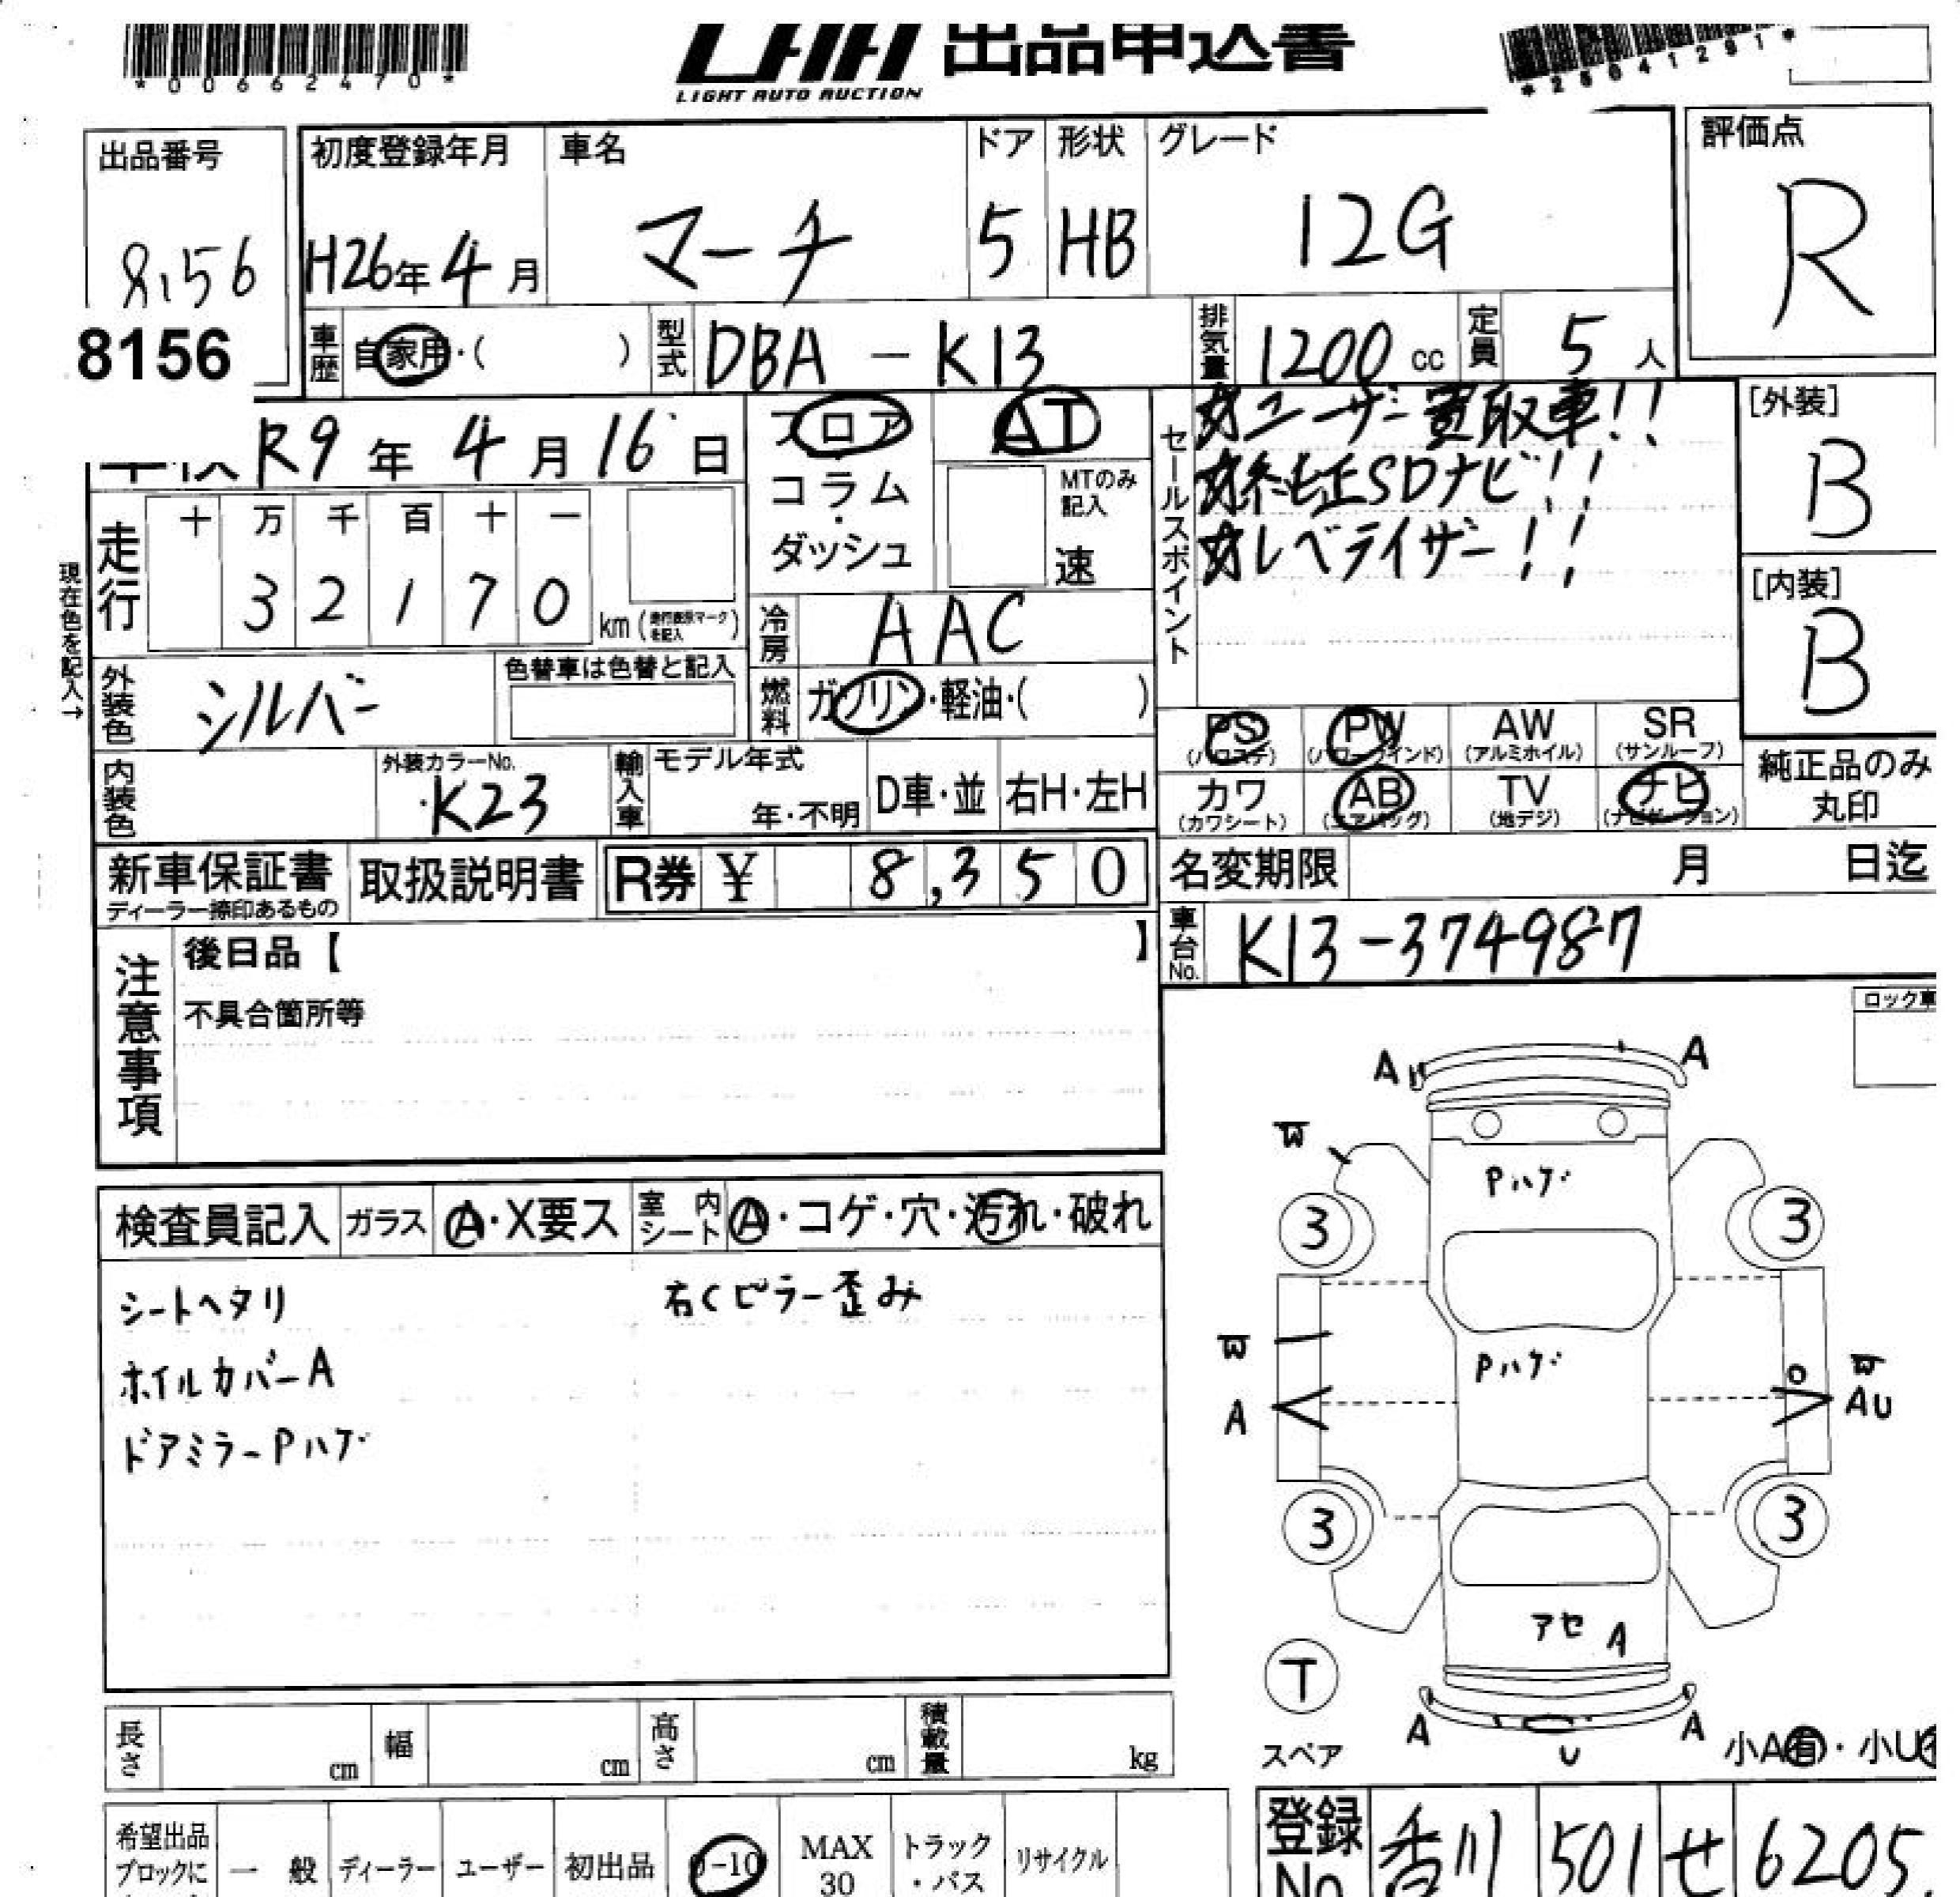 *00662470*
LAA
LIGHT AUTO AUCTION
出品申込書
出品番号
8156
8156
初度登録年月
H26年4月
車名
マーチ
ドア
5
形状
HB
グレード
12G
評価点
R
車歴
自家用・( )
型式
DBA-K13
排気量
1200 cc
定員
5人
R9年4月16日
フロア
コラム
・
ダッシュ
AT
MTのみ
記入
速
セールスポイント
ユーザー買取車!!
純正SDナビ!!
レベライザー!!
[外装]
B
[内装]
B
現在色を記入→
走行
十 万 千 百 十 一
3 2 1 7 0
km
冷房
AAC
外装色
シルバー
色替車は色替と記入
燃料
ガソリン・軽油・( )
PS
(パワステ)
PW
(パワーウインド)
AW
(アルミホイル)
SR
(サンルーフ)
カワ
(カワシート)
AB
(エアバッグ)
TV
(地デジ)
ナビ
(ナビゲーション)
純正品のみ
丸印
内装色
外装カラーNo.
K23
輸入車
モデル年式
年・不明
D車・並
右H・左H
新車保証書
ディーラー捺印あるもの
取扱説明書
R券 ¥ 8,350
名変期限
月 日迄
車台No.
K13-374987
注意事項
後日品【 】
不具合箇所等
ロック車
検査員記入
ガラス
A・X要ス
室内シート
A・コゲ・穴・汚れ・破れ
シートヘタリ
右Cピラー歪み
ホイルカバーA
ドアミラーPハゲ
A
A
W
Pハゲ
3
3
W
Pハゲ
W
A
AU
3
3
アセ A
T
スペア
A
U
A
小A有・小U
長さ
cm
幅
cm
高さ
cm
積載量
kg
希望出品
ブロックに
一般
ディーラー
ユーザー
初出品
0-10
MAX
30
トラック
・バス
リサイクル
登録
No
香川 501 せ 6205